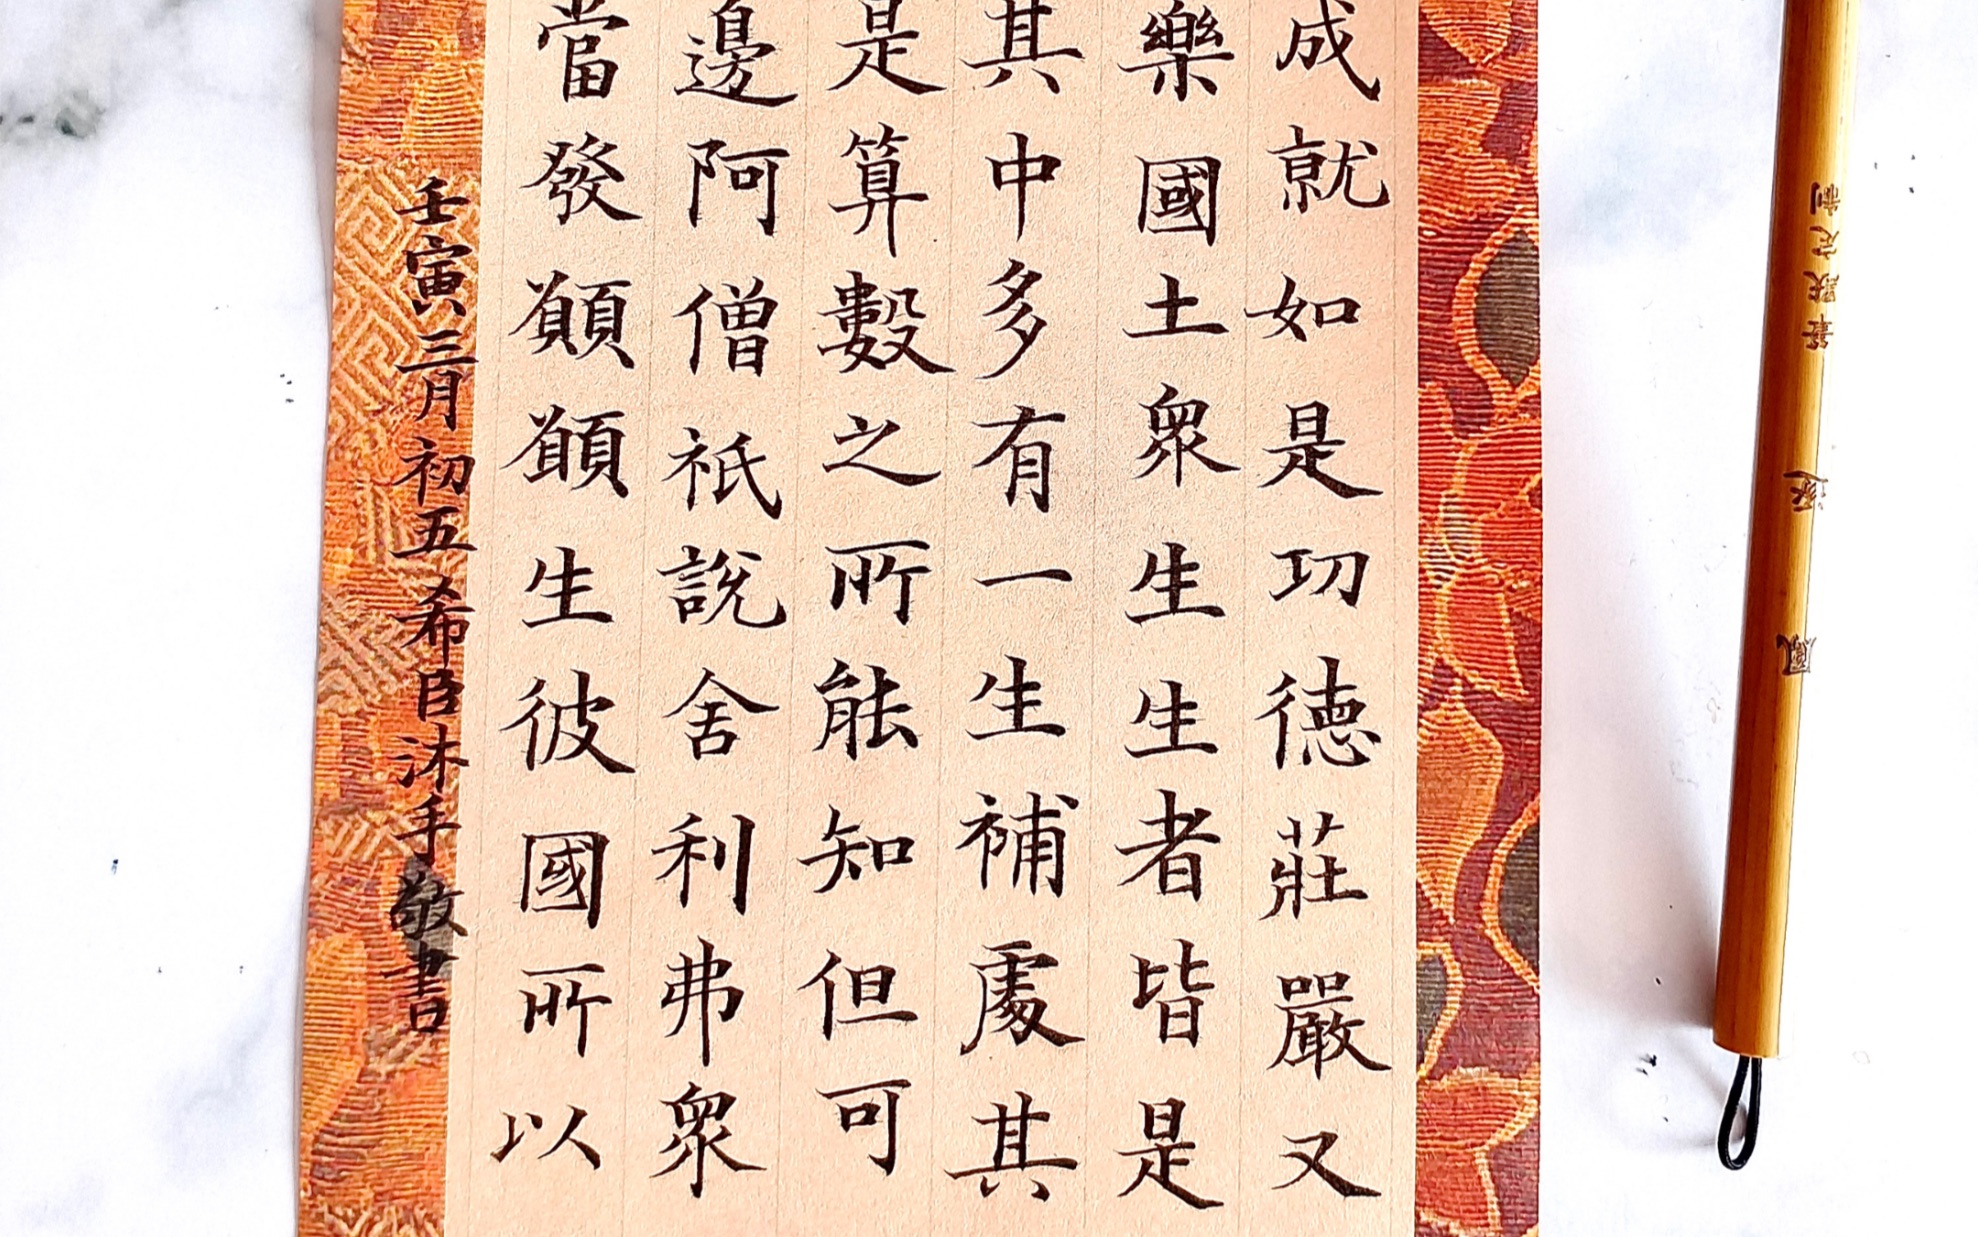 成就如是功德莊嚴又
樂國土眾生生者皆是
其中多有一生補處其
是算數之所能知但可
邊阿僧祇說舍利弗眾
當發願願生彼國所以
壬寅三月初五希臣沐手敬書
鳳逐
筆歌定制